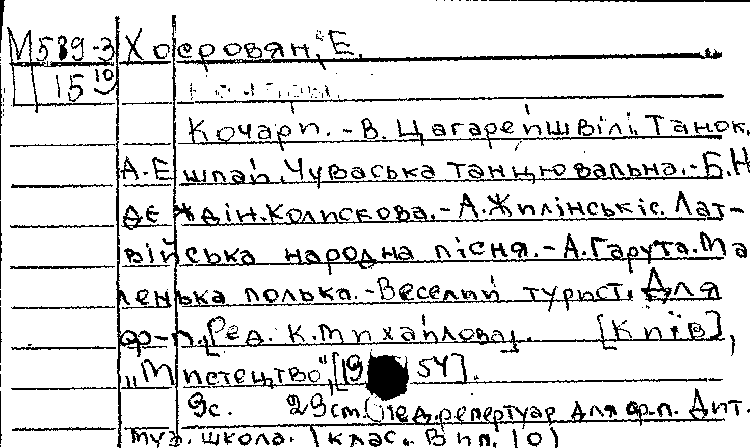 М589-3 Хосровян, Е.
П 15 10
Кочарі. - В. Цагарейшвілі. Танок.
А. Ешпай. Чуваська танцювальна. - Б. Н
дєждін. Колискова. - А. Жилінскіс. Лат-
війська народна пісня. - А. Гарута. Ма
ленька полька. - Веселий турист. Для
ф-п. [Ред. К. Михайлова]. [Київ],
„Мистецтво", [1954].
9с. 29см. (Пед. репертуар для ф.п. Дит.
муз. школа. 1 клас. Вип. 10)